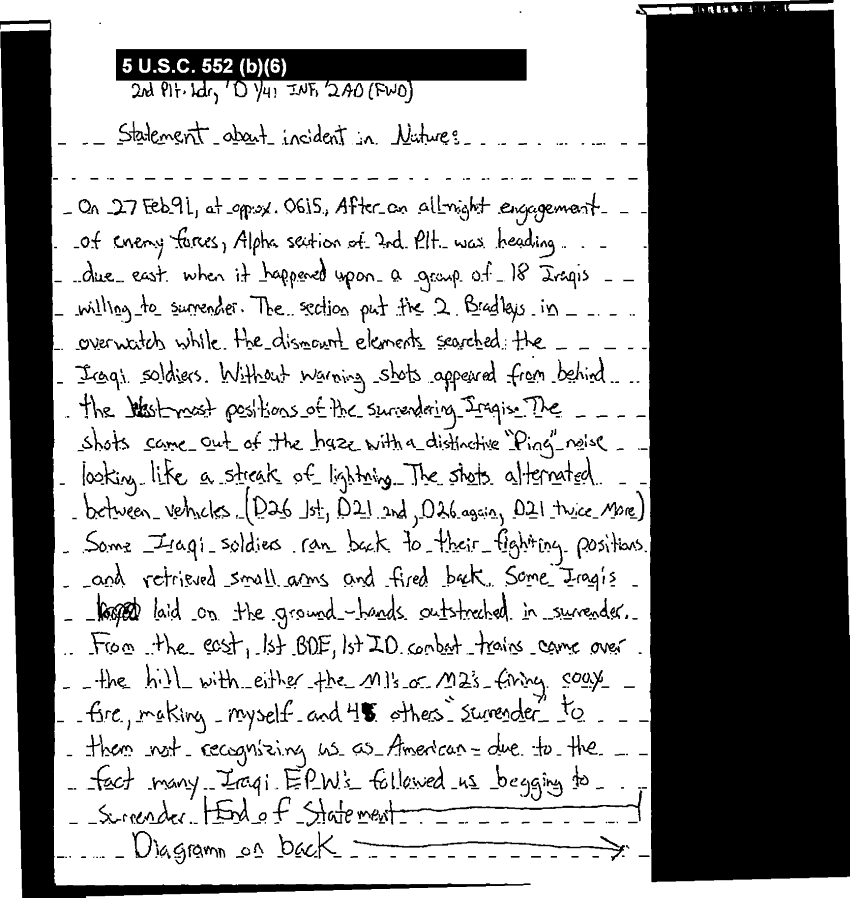 5 U.S.C. 552 (b)(6)
2nd Plt. Ldr, D 1/41 INF, 2AD (FWD)
Statement about incident in Nature:
On 27 Feb 91, at approx. 0615, After an all-night engagement
of enemy forces, Alpha section of 2nd. Plt. was heading
due east when it happened upon a group of 18 Iraqis
willing to surrender. The section put the 2 Bradleys in
overwatch while the dismount elements searched the
Iraqi soldiers. Without warning shots appeared from behind
the most positions of the surrendering Iraqis. The
shots came out of the haze with a distinctive "Ping" noise
looking like a streak of lightning. The shots alternated
between vehicles. (D26 1st, D21 2nd, D26 again, D21 twice More)
Some Iraqi soldiers ran back to their fighting positions
and retrieved small arms and fired back. Some Iraqis
laid on the ground-hands outstreched in surrender.
From the east, 1st BDE, 1st ID combat trains came over
the hill with either the M1's or M2's firing coax
fire, making myself and others "surrender" to
them not recognizing us as American - due to the
fact many Iraqi EPW's followed us begging to
surrender. End of Statement
Diagramn on back